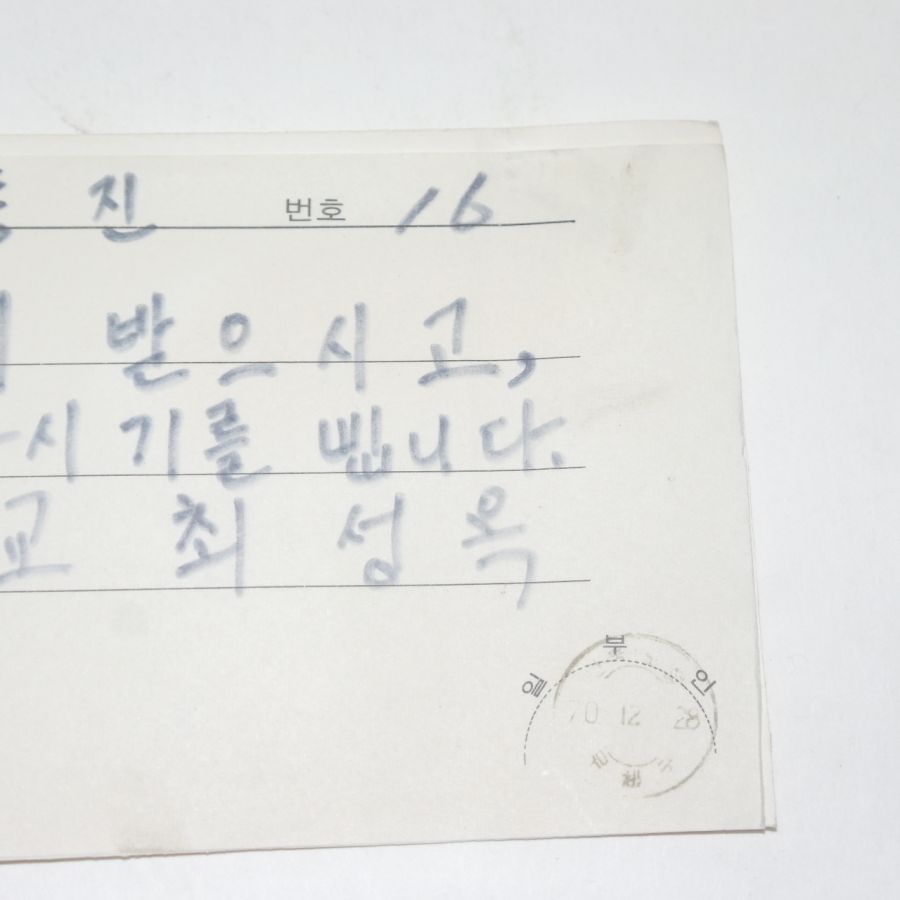 진 번호 16
받으시고,
시기를 삡니다.
교 최성옥
일부인
70 12 28